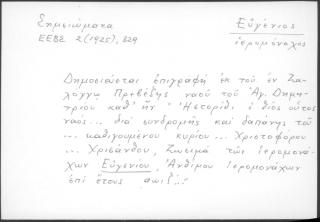 Σημειώματα
Εὐγένιος
ΕΕΒΣ 2 (1925), 329
ἱερομόναχος
Δημοσιεύεται ἐπιγραφὴ ἐκ τοῦ ἐν Ζα-
λόγγῳ Πρεβέζης ναοῦ τοῦ Ἁγ. Δημη-
τρίου καθ' ἣν "Ἱστορίθι ὁ θῖος οὗτος
ναὸς... διὰ συνδρομῆς καὶ δαπάνης τῶ
... καθιγουμένου κυρίου... Χριστοφόρου
... Χρισάνθου, Ζωσιμᾶ τῶν ἱερομονά-
χων Εὐγενίου, Ἀνθίμου ἱερομονάχων
ἐπὶ ἔτους